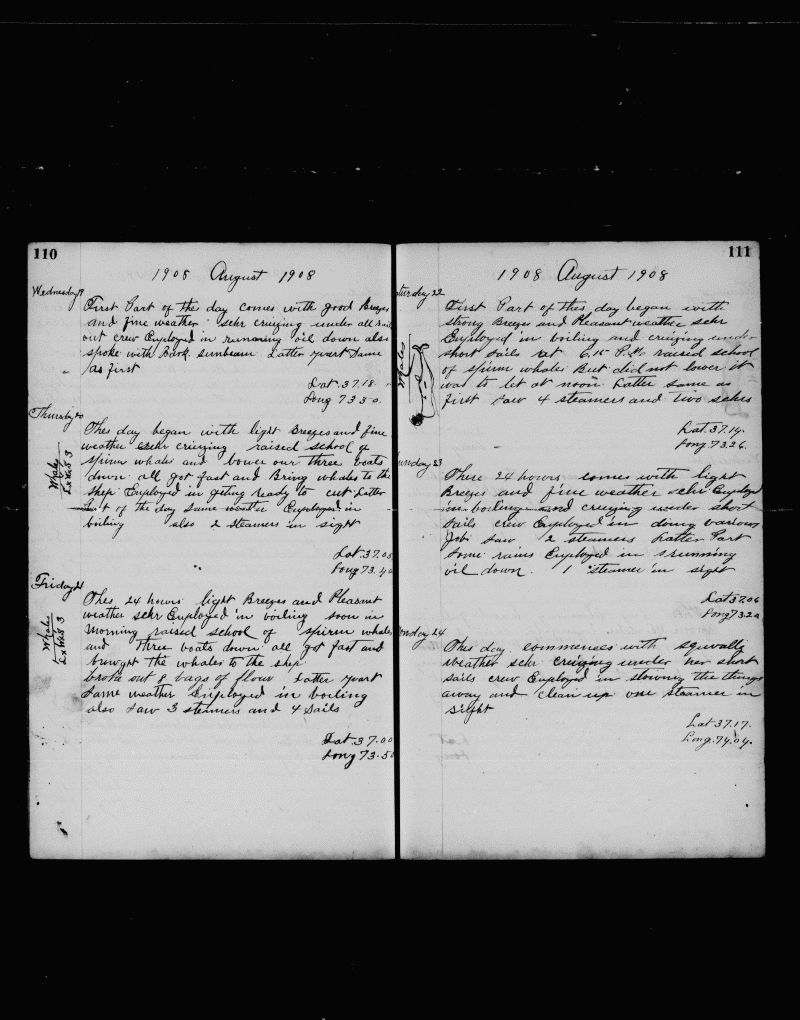 110
1908 August 1908
Wednesday 19
First Part of the day comes with good Breezes
and fine weather schr cruizing under all sail
out crew Employed in running oil down also
spoke with Bark sunbeam Latter part Same
as first
Lat. 37.18.
Long 73 50.
Thursday 20
Thes day began with light Breezes and fine
weather schr cruizing raised school of
spirm whales and lower our three boats
down all got fast and Bring whales to the
ship Employed in geting ready to cut Latter
Part of the day same weather Employed in
boiling also 2 steamers in sight
Whales
3
Lat. 37.05
Long 73.40
Friday 21
Thes 24 hours light Breezes and Pleasant
weather schr Employed in boiling soon in
Morning raised school of spirm whales
and three boats down all got fast and
browght the whales to the ship
broke out 8 bags of flour Latter part
Same weather Employed in boiling
also saw 3 steamers and 4 sails
Whales
3
Lat 37.00
Long 73.50
111
1908 August 1908
turday 22
First Part of thes day began with
strong Breezes and Pleasant weather schr
Employed in boiling and cruizing under
short sails at 6.15 P.M. raised school
of spirm whales But did not lower it
was to let at noon Latter same as
first saw 4 steamers and two schrs
Whales
Lat. 37.14.
Long. 73.26.
unday 23
These 24 howrs comes with light
Breezes and fine weather schr Employe
in boiling and cruizing under short
sails crew Employed in doing variows
Job saw 2 steamers Latter Part
some rains Employed in srunning
oil down. 1 steamer in sight
Lat 37.06
Long 73.20
onday 24
Thes day commences with squalls
weather schr cruizing under her short
sails crew Employed in stowing the things
away and clean up one steamer in
sight
Lat 37.17.
Long. 74.04.